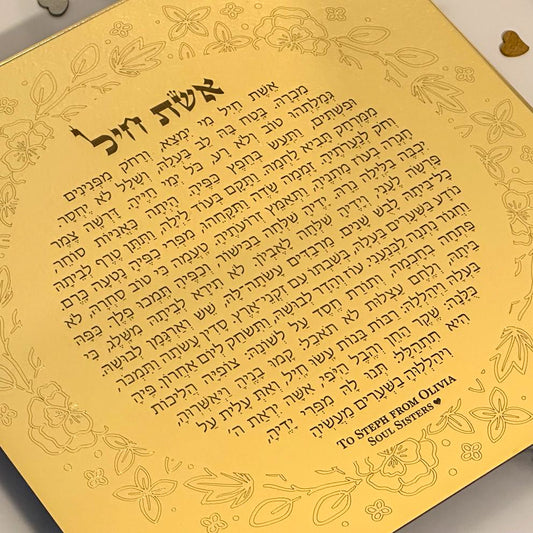 אשת חיל
אֵשֶׁת חַיִל מִי יִמְצָא, וְרָחֹק מִפְּנִינִים
מִכְרָהּ. בָּטַח בָּהּ לֵב בַּעְלָהּ, וְשָׁלָל לֹא יֶחְסָר.
גְּמָלַתְהוּ טוֹב וְלֹא רָע, כֹּל יְמֵי חַיֶּיהָ. דָּרְשָׁה צֶמֶר
וּפִשְׁתִּים, וַתַּעַשׂ בְּחֵפֶץ כַּפֶּיהָ. הָיְתָה כָּאֳנִיּוֹת סוֹחֵר,
מִמֶּרְחָק תָּבִיא לַחְמָהּ. וַתָּקָם בְּעוֹד לַיְלָה, וַתִּתֵּן טֶרֶף לְבֵיתָהּ
וְחֹק לְנַעֲרֹתֶיהָ. זָמְמָה שָׂדֶה וַתִּקָּחֵהוּ, מִפְּרִי כַפֶּיהָ נָטְעָה כָּרֶם.
חָגְרָה בְעוֹז מָתְנֶיהָ, וַתְּאַמֵּץ זְרוֹעֹתֶיהָ. טָעֲמָה כִּי טוֹב סַחְרָהּ, לֹא
יִכְבֶּה בַלַּיְלָה נֵרָהּ. יָדֶיהָ שִׁלְּחָה בַכִּישׁוֹר, וְכַפֶּיהָ תָּמְכוּ פָלֶךְ. כַּפָּהּ
פָּרְשָׂה לֶעָנִי, וְיָדֶיהָ שִׁלְּחָה לָאֶבְיוֹן. לֹא תִירָא לְבֵיתָהּ מִשָּׁלֶג, כִּי
כָל בֵּיתָהּ לָבֻשׁ שָׁנִים. מַרְבַדִּים עָשְׂתָה לָּהּ, שֵׁשׁ וְאַרְגָּמָן לְבוּשָׁהּ.
נוֹדָע בַּשְּׁעָרִים בַּעְלָהּ, בְּשִׁבְתּוֹ עִם זִקְנֵי אָרֶץ. סָדִין עָשְׂתָה וַתִּמְכֹּר,
וַחֲגוֹר נָתְנָה לַכְּנַעֲנִי. עֹז וְהָדָר לְבוּשָׁהּ, וַתִּשְׂחַק לְיוֹם אַחֲרוֹן. פִּיהָ
פָּתְחָה בְחָכְמָה, וְתוֹרַת חֶסֶד עַל לְשׁוֹנָהּ. צוֹפִיָּה הֲלִיכוֹת
בֵּיתָהּ, וְלֶחֶם עַצְלוּת לֹא תֹאכֵל. קָמוּ בָנֶיהָ וַיְאַשְּׁרוּהָ,
בַּעְלָהּ וַיְהַלְלָהּ. רַבּוֹת בָּנוֹת עָשׂוּ חָיִל, וְאַתְּ עָלִית עַל
כֻּלָּנָה. שֶׁקֶר הַחֵן וְהֶבֶל הַיֹּפִי, אִשָּׁה יִרְאַת ה'
הִיא תִתְהַלָּל. תְּנוּ לָהּ מִפְּרִי יָדֶיהָ,
וִיהַלְלוּהָ בַשְּׁעָרִים מַעֲשֶׂיהָ.
TO STEPH FROM OLIVIA
SOUL SISTERS ♥